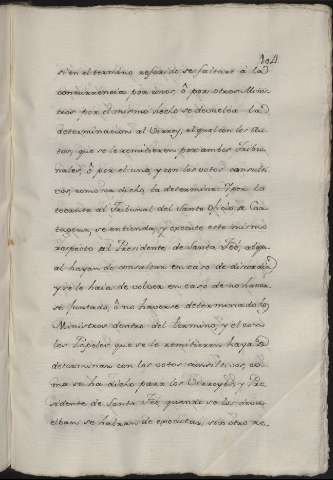 104
si en el termino referido se faltare à la
concurrencia por unos, ô por otros Minis
tros por el mismo hecho se devuelva la
determinacion al Virrey, el qual con los Au
tos, que se le remitieren por ambos Tribu
nales, ô por el uno, y con los votos consulti
vos, como va dicho, la determine: Y por lo
tocante al Tribunal del Santo Oficio de Car
tagena, se entienda, y execute esto mismo
respecto al Presidente de Santa Feé, a
al hayan de consultar en caso de discordia
y se le haia de volver en caso de no haver
se juntado, ô no haverse determinado los
Ministros dentro del termino, y el con
los Papeles que se le remitieren haya de
determinar con los votos consultivos, co
mo se ha dicho para los Virreyes, y Pre
sidente de Santa Feé quando se las devu
elban se habran de executar, sin otro re-